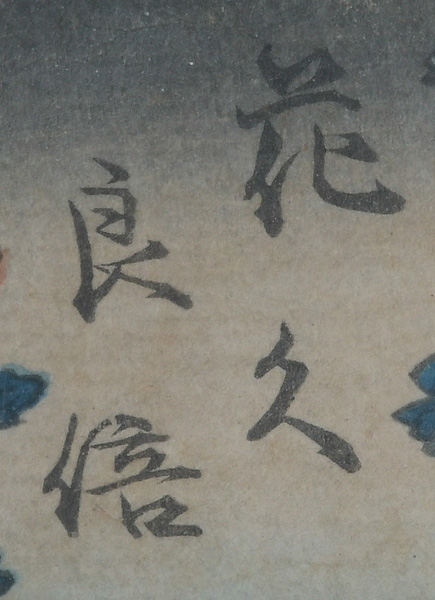 花久
良倍